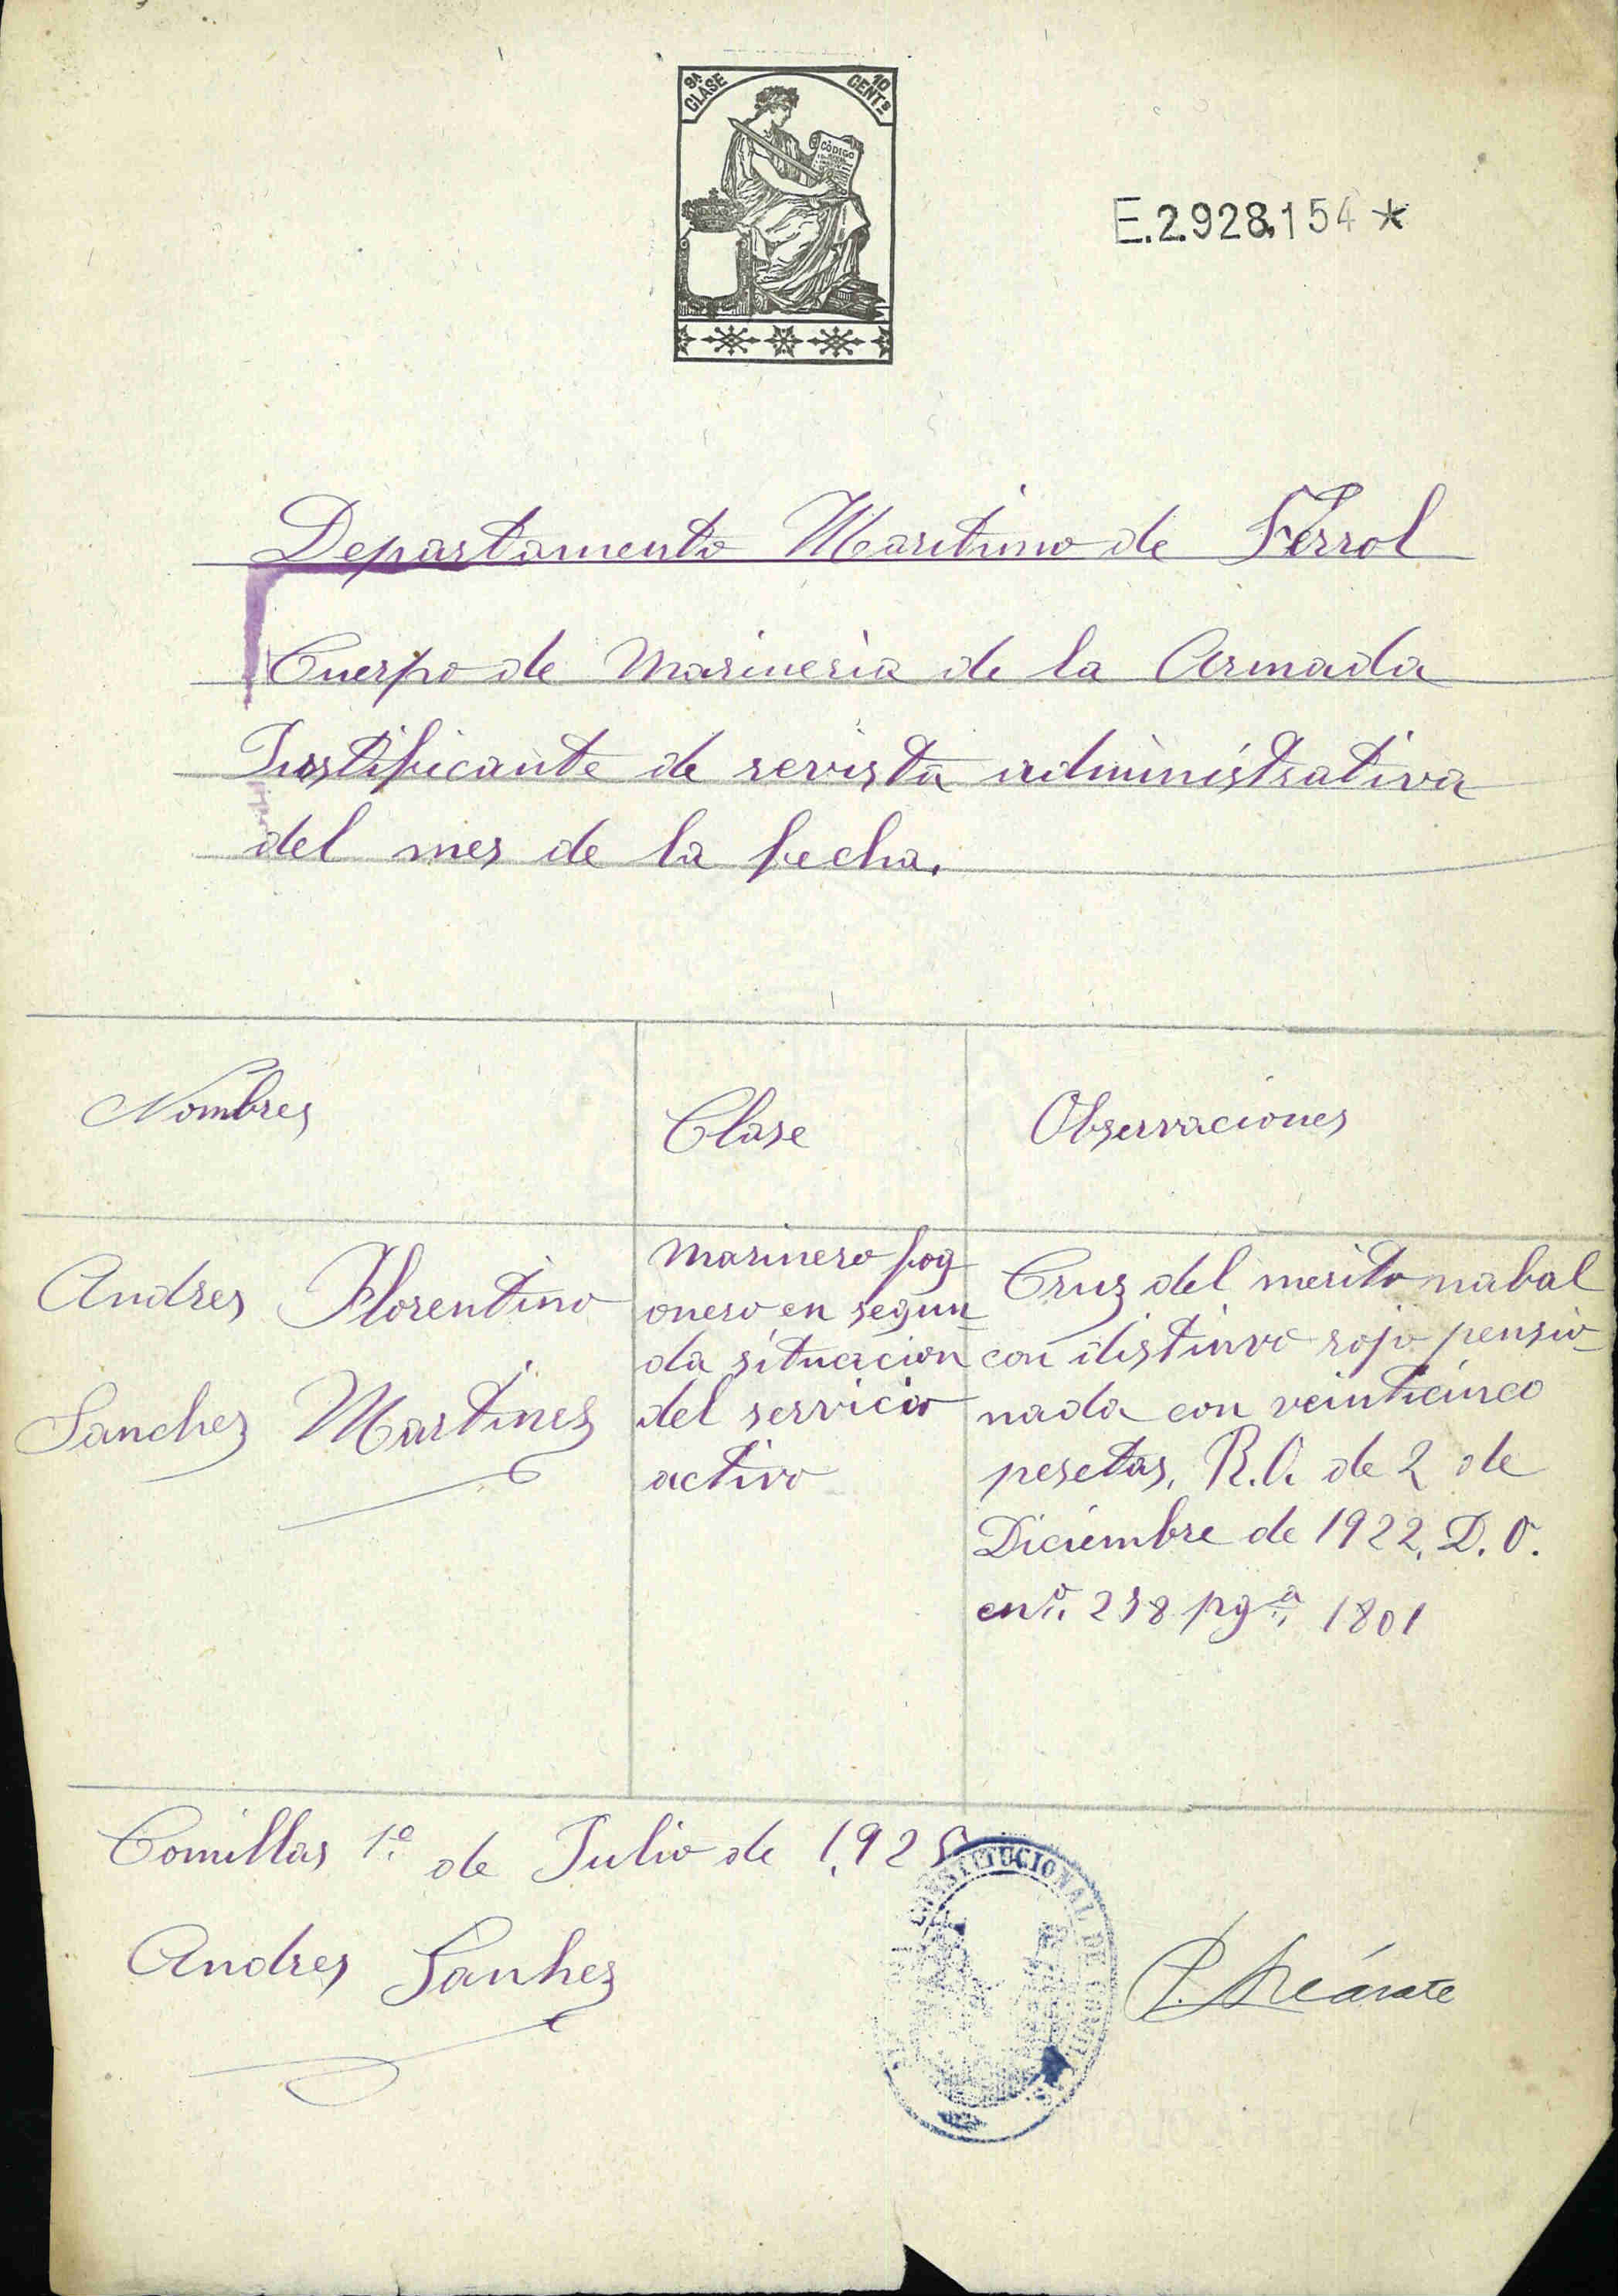 9A CLASE
10 CENTS
CODIGO
E.2.928,154 *
Departamento Maritimo de Ferrol
Cuerpo de Marineria de la Armada
Justificante de revista administrativa
del mes de la fecha.
Nombres
Clase
Observaciones
Andres Florentino
Sanchez Martines
marinero fog
onero en segun
da situacion
del servicio
activo
Cruz del merito nabal
con distinvo rojo pensio
nada con veinticinco
pesetas, R.O. de 2 de
Diciembre de 1922, D. O.
en nº 258 pgª 1801
Comillas 1º de Julio de 1,925
CONSTITUCIONAL DE COMILLAS
Andres Sanhez